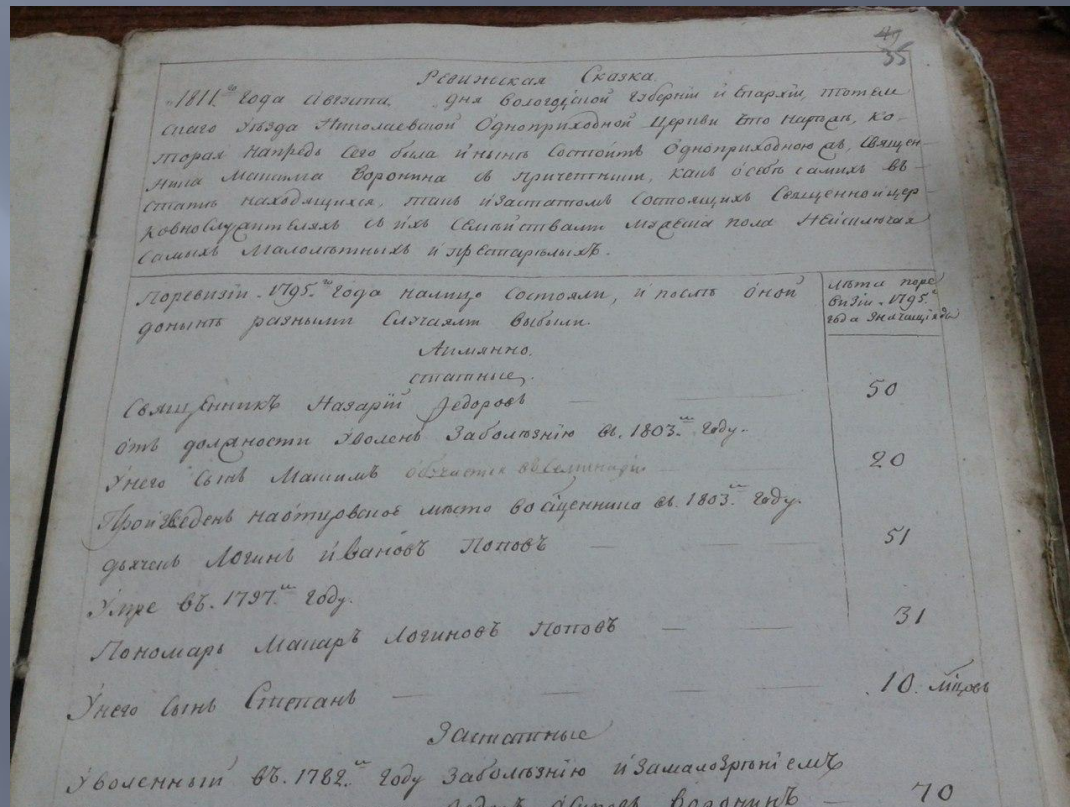 49
35
Ревижская Сказка
1811.го Года Августа, дня Вологодской Губернии и Епархіи, тотем
скаго Уѣзда Николаевской Одноприходной Церкви Что
торая напредь сего была и нынѣ состоитъ Одноприходною съ, священ-
ника Максима Воронина съ причетники, какъ о себѣ самихъ въ
статѣ находящихся, такъ и застатомъ состоящихъ Священноцер
ковнослужителяхъ съ ихъ семействами мужеска пола Неисключая
самыхъ малолѣтныхъ и престарѣлыхъ.
Поревизіи 1795.го Года налицо состояли, и послѣ оной
донынѣ разными случаями выбыли.
лѣта поре
визіи 1795.
года значащіяся
Аимянно.
статные.
Священникъ Назарій Федоровъ 50
отъ должности Уволенъ Заболѣзнію въ 1803.м Году.
Унего Сынъ Максимъ обучается въ Семинаріи 20
Произведенъ наотцовское мѣсто во священника въ 1803.м Году.
дьячекъ Логинъ Ивановъ Поповъ 51
Умре въ 1797.м Году.
Пономарь Макаръ Логиновъ Поповъ 31
Унего Сынъ Степанъ 10. мѣсцовъ
Застатные
Уволенный въ 1782.м Году Заболѣзнію и Замалозрѣніемъ
Воронинъ 70